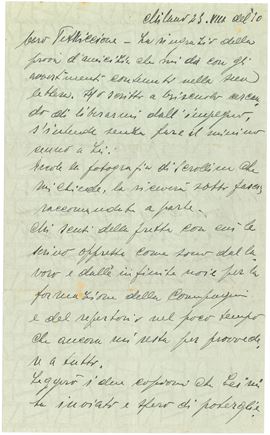 Milano 23. VIII del 10
Caro Petriccione - La ringrazio della
prova d'amicizia che mi dà con gli
avvertimenti contenuti nella sua
lettera. Ho scritto a cercan
do di liberarmi dall'impegno,
s'intende senza fare il minimo
cenno a Lei.
Eccole la fotografia di
mi chiede, la riceverà sotto fascia
raccomandata a parte.
Mi scusi della fretta con cui le
scrivo oppresso come sono dal la
voro e dalle infinite noie per la
formazione della Compagnia
e del repertorio nel poco tempo
che ancora mi resta per provvede
re a tutto.
Leggerò i due copioni che Lei mi
ha inviato e spero di potergli